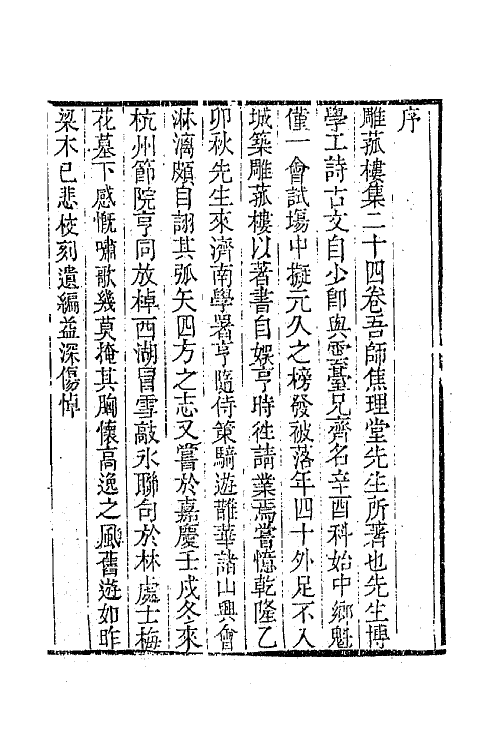 序
雕菰樓集二十四卷吾師焦理堂先生所著也先生博
學工詩古文自少卽與雲臺兄齊名辛酉科始中鄉魁
僅一會試塲中擬元久之榜發被落年四十外足不入
城築雕菰樓以著書自娛亨時徃請業焉嘗憶乾隆乙
卯秋先生來濟南學署亨隨侍策騎遊鵲華諸山興會
淋漓頗自詡其弧矢四方之志又嘗於嘉慶壬戌冬來
杭州節院亨同放棹西湖冒雪敲氷聯句於林處士梅
花墓下感慨嘯歌幾莫掩其胸懷高逸之風舊遊如昨
梁木已悲佼刻遺編益深傷悼